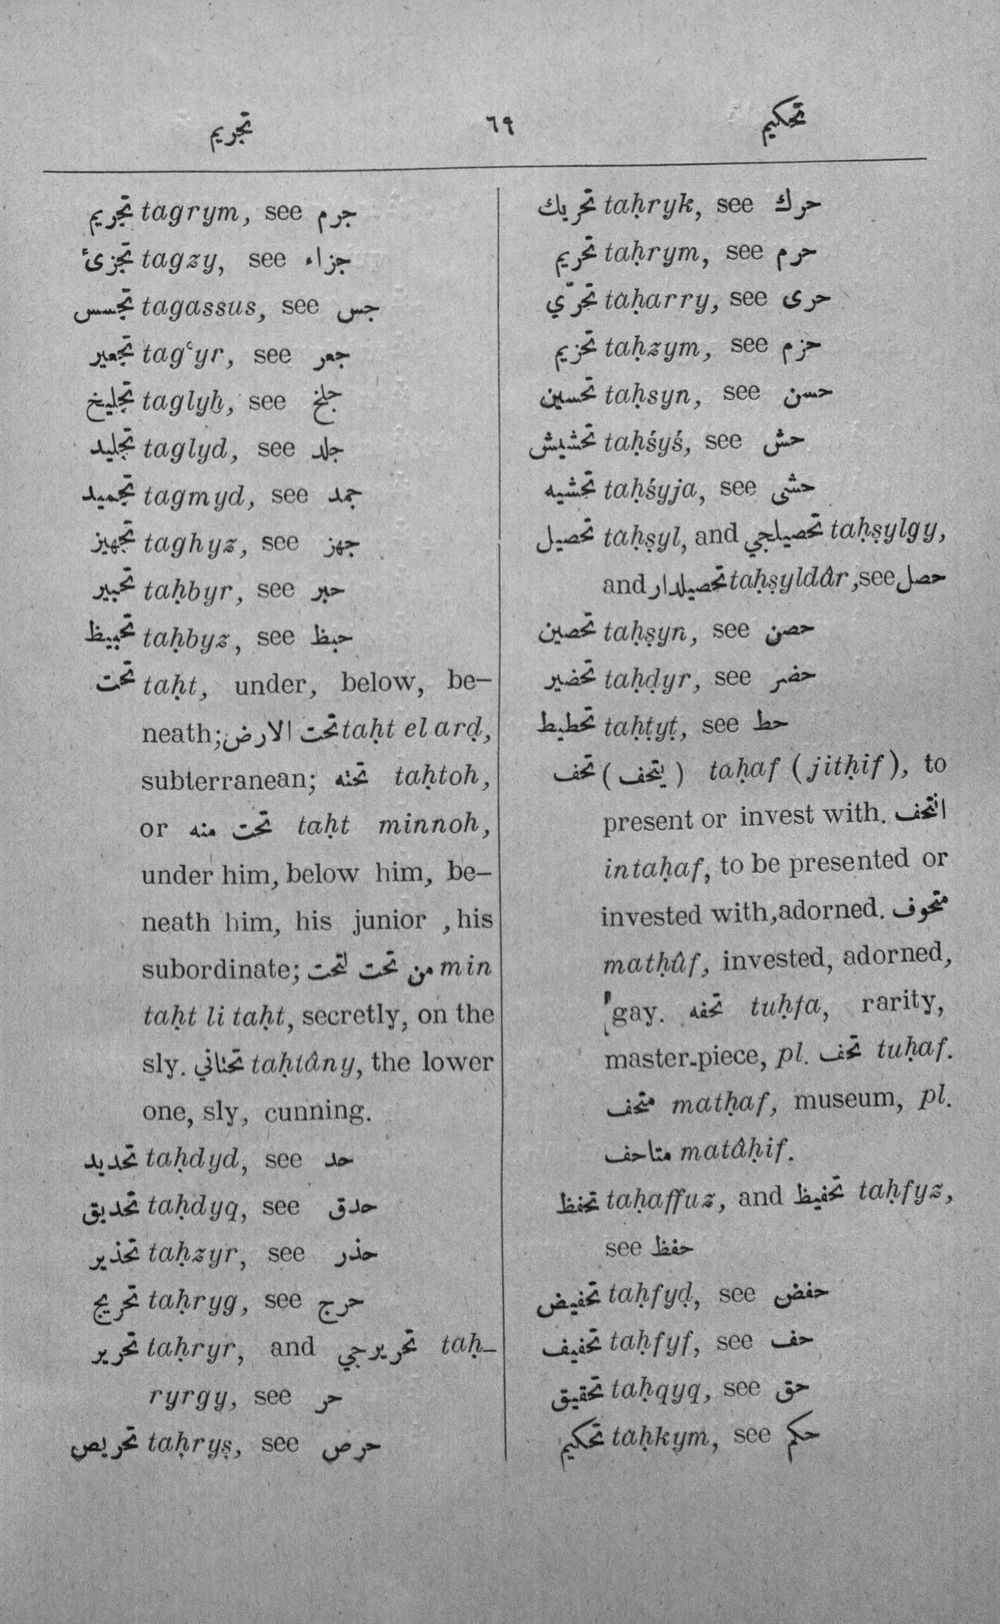 تجريم ٦٩ تحكيم
تجريم tagrym, see جرم
تجزئ tagzy, see جزاء
تجسس tagassus, see جس
تجعير tagʿyr, see جعر
تجليخ taglyẖ, see جلخ
تجليد taglyd, see جلد
تجميد tagmyd, see جمد
تجهيز taghyz, see جهز
تحبير taḥbyr, see حبر
تحبيظ taḥbyz, see حبظ
تحت taḥt, under, below, be-
neath; تحت الارض taḥt el arḍ,
subterranean; تحته taḥtoh,
or تحت منه taḥt minnoh,
under him, below him, be-
neath him, his junior, his
subordinate; من تحت لتحت min
taḥt li taḥt, secretly, on the
sly. تحتاني taḥtâny, the lower
one, sly, cunning.
تحديد taḥdyd, see حد
تحديق taḥdyq, see حدق
تحذير taḥzyr, see حذر
تحريج taḥryg, see حرج
تحرير taḥryr, and تحريرجي taḥ-
ryrgy, see حر
تحريص taḥryṣ, see حرص
تحريك taḥryk, see حرك
تحريم taḥrym, see حرم
تحرّي taḥarry, see حرى
تحزيم taḥzym, see حزم
تحسين taḥsyn, see حسن
تحشيش taḥśyś, see حش
تحشيه taḥśyja, see حشى
تحصيل taḥṣyl, and تحصيلجي taḥṣylgy,
and تحصيلدار taḥṣyldâr, see حصل
تحصين taḥṣyn, see حصن
تحضير taḥḍyr, see حضر
تحطيط taḥṭyṭ, see حط
تحف (يتحف) taḥaf (jitḥif), to
present or invest with. انتحف
intaḥaf, to be presented or
invested with, adorned. متحوف
matḥûf, invested, adorned,
gay. تحفه tuḥfa, rarity,
master-piece, pl. تحف tuḥaf.
متحف matḥaf, museum, pl.
متاحف matâḥif.
تحفظ taḥaffuz, and تحفيظ taḥfyz,
see حفظ
تحفيض taḥfyḍ, see حفض
تحفيف taḥfyf, see حف
تحقيق taḥqyq, see حق
تحكيم taḥkym, see حكم